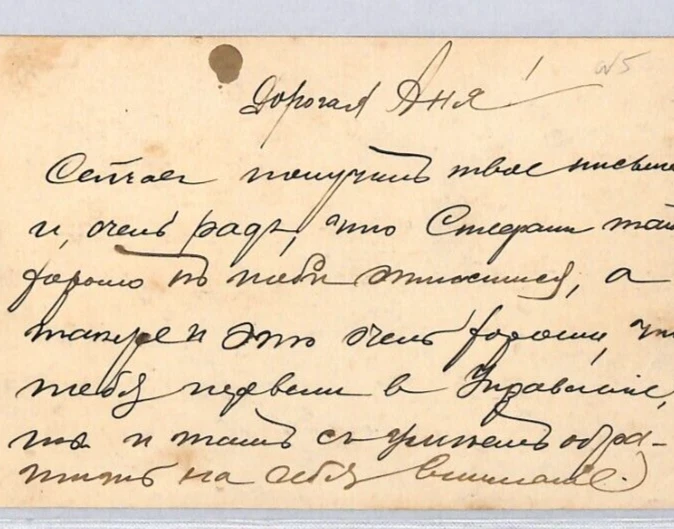 Дорогая Аня!
Сейчас получилъ твое письмо
и, очень радъ, что Стефани такъ
хорошо къ тебѣ относится, а
также и это очень хорошо, что
тебя перевели в Управление,
ты и тамъ с обра-
тить на себя внимание.